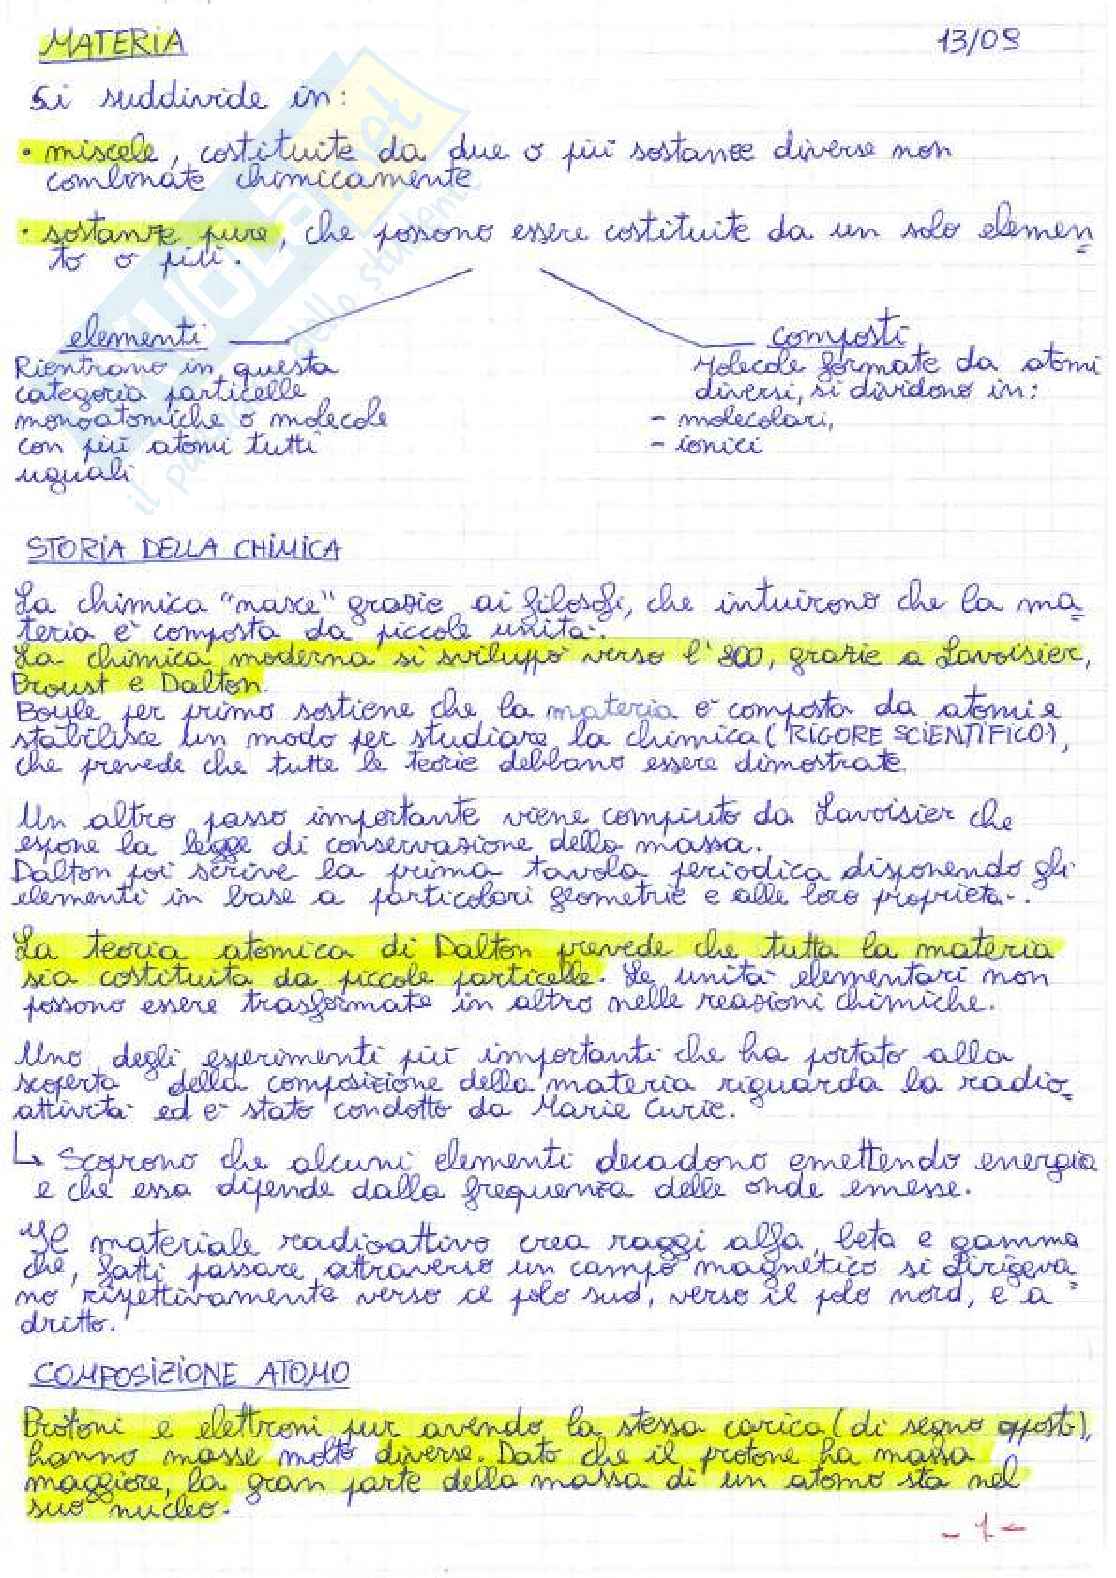 MATERIA 13/09
Si suddivide in:
• miscele, costituite da due o più sostanze diverse non
combinate chimicamente
• sostanze pure, che possono essere costituite da un solo elemen=
to o più.
elementi
Rientrano in questa
categoria particelle
monoatomiche o molecole
con più atomi tutti
uguali
composti
Molecole formate da atomi
diversi, si dividono in:
- molecolari,
- ionici
STORIA DELLA CHIMICA
La chimica "nasce" grazie ai filosofi, che intuirono che la ma=
teria è composta da piccole unità.
La chimica moderna si sviluppò verso l'800, grazie a Lavoisier,
Proust e Dalton.
Boyle per primo sostiene che la materia è composta da atomi e
stabilisce un modo per studiare la chimica (RIGORE SCIENTIFICO),
che prevede che tutte le teorie debbano essere dimostrate.
Un altro passo importante viene compiuto da Lavoisier che
espone la legge di conservazione della massa.
Dalton poi scrive la prima tavola periodica disponendo gli
elementi in base a particolari geometrie e alle loro proprietà.
La teoria atomica di Dalton prevede che tutta la materia
sia costituita da piccole particelle. Le unità elementari non
possono essere trasformate in altro nelle reazioni chimiche.
Uno degli esperimenti più importanti che ha portato alla
scoperta della composizione della materia riguarda la radio=
attività ed è stato condotto da Marie Curie.
↳ Scoprono che alcuni elementi decadono emettendo energia
e che essa dipende dalla frequenza delle onde emesse.
Il materiale radioattivo crea raggi alfa, beta e gamma
che, fatti passare attraverso un campo magnetico si dirigeva=
no rispettivamente verso il polo sud, verso il polo nord, e a
dritto.
COMPOSIZIONE ATOMO
Protoni e elettroni pur avendo la stessa carica (di segno opposto),
hanno masse molto diverse. Dato che il protone ha massa
maggiore, la gran parte della massa di un atomo sta nel
suo nucleo.
- 1 -
il paradiso dello studente